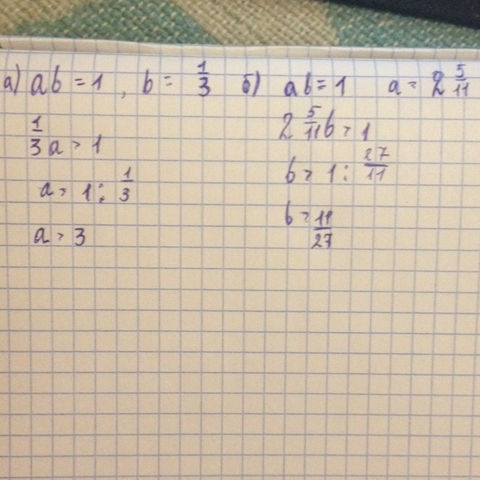 а) ab = 1, b = 1/3
1/3 a = 1
a = 1 : 1/3
a = 3
б) ab = 1 a = 2 5/11
2 5/11 b = 1
b = 1 : 27/11
b = 11/27